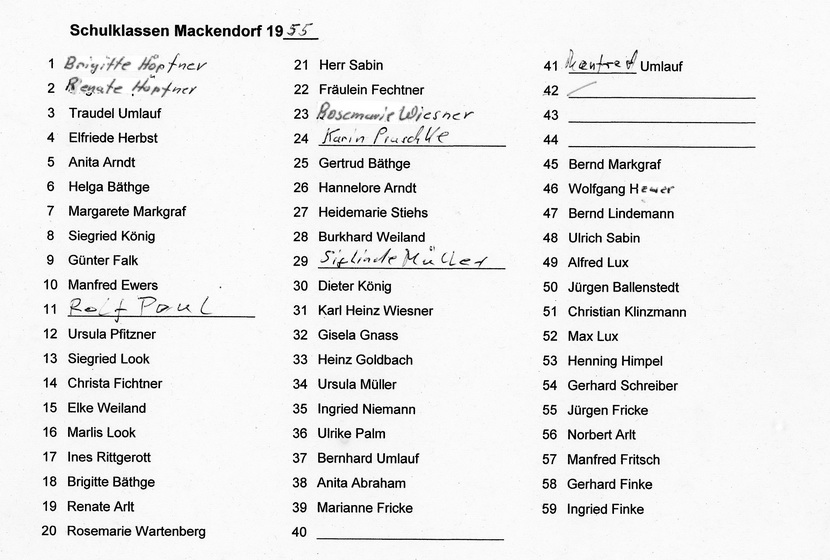 Schulklassen Mackendorf 1955
1 Brigitte Höpfner
2 Renate Höpfner
3 Traudel Umlauf
4 Elfriede Herbst
5 Anita Arndt
6 Helga Bäthge
7 Margarete Markgraf
8 Siegried König
9 Günter Falk
10 Manfred Ewers
11 Rolf Paul
12 Ursula Pfitzner
13 Siegried Look
14 Christa Fichtner
15 Elke Weiland
16 Marlis Look
17 Ines Rittgerott
18 Brigitte Bäthge
19 Renate Arlt
20 Rosemarie Wartenberg
21 Herr Sabin
22 Fräulein Fechtner
23 Rosemarie Wiesner
24 Karin
25 Gertrud Bäthge
26 Hannelore Arndt
27 Heidemarie Stiehs
28 Burkhard Weiland
29 Siglinde Müller
30 Dieter König
31 Karl Heinz Wiesner
32 Gisela Gnass
33 Heinz Goldbach
34 Ursula Müller
35 Ingried Niemann
36 Ulrike Palm
37 Bernhard Umlauf
38 Anita Abraham
39 Marianne Fricke
40
41 Manfred Umlauf
42
43
44
45 Bernd Markgraf
46 Wolfgang
47 Bernd Lindemann
48 Ulrich Sabin
49 Alfred Lux
50 Jürgen Ballenstedt
51 Christian Klinzmann
52 Max Lux
53 Henning Himpel
54 Gerhard Schreiber
55 Jürgen Fricke
56 Norbert Arlt
57 Manfred Fritsch
58 Gerhard Finke
59 Ingried Finke